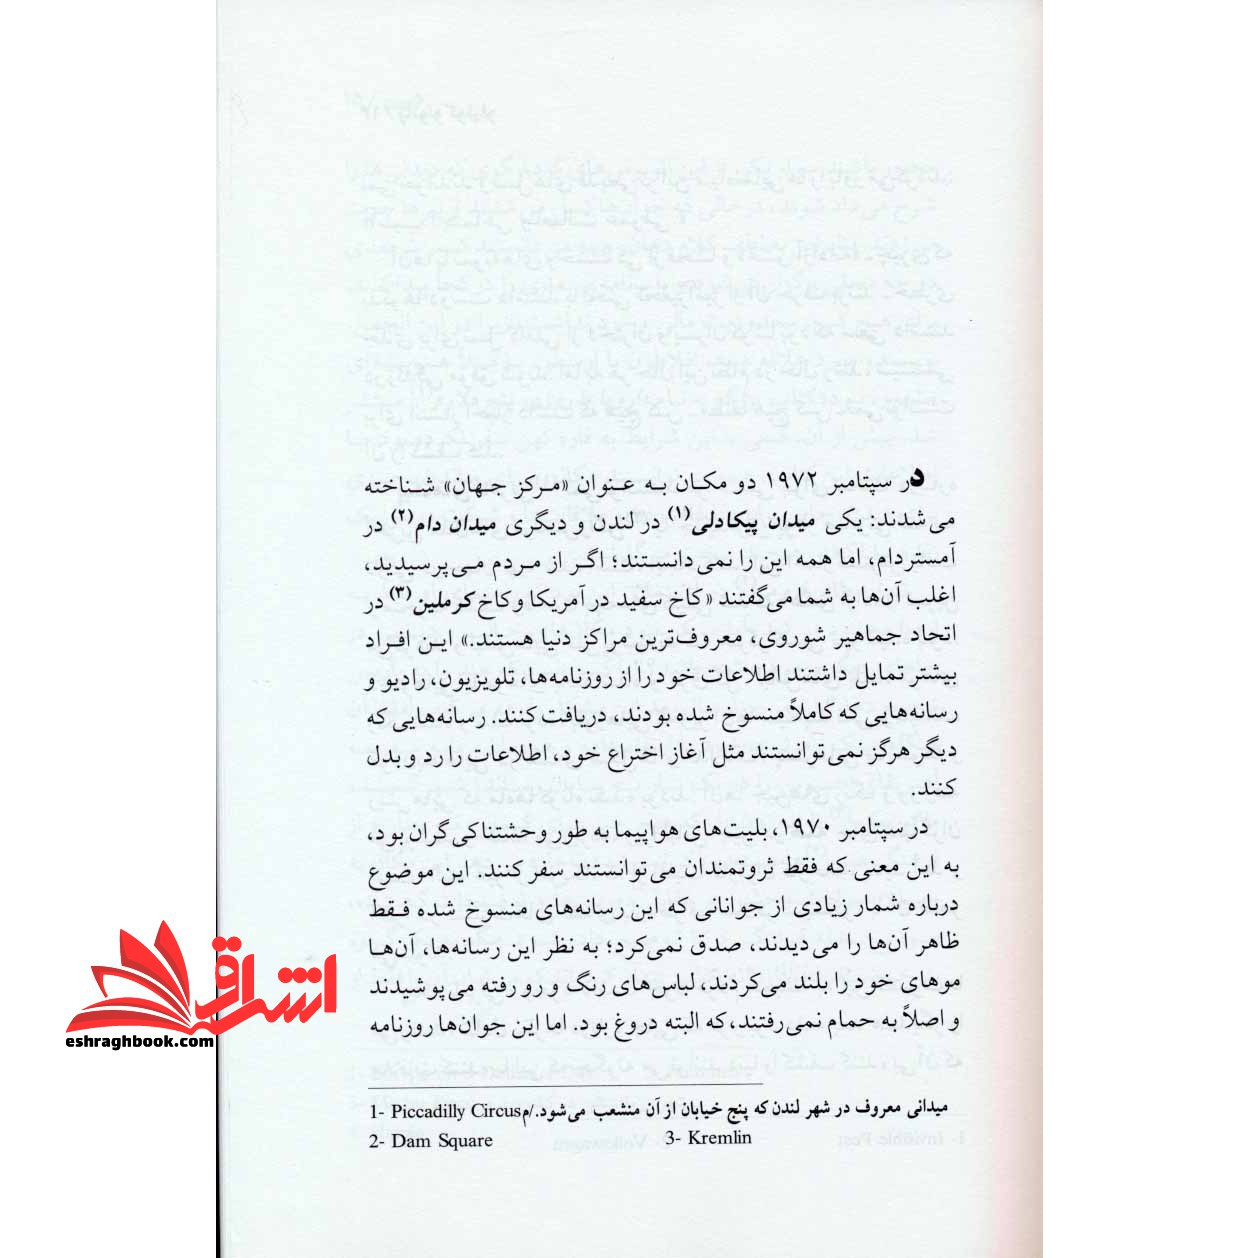 در سپتامبر ۱۹۷۲ دو مکان به عنوان «مرکز جهان» شناخته
می‌شدند: یکی میدان پیکادلی(۱) در لندن و دیگری میدان دام(۲) در
آمستردام، اما همه این را نمی‌دانستند؛ اگر از مردم می‌پرسیدید،
اغلب آن‌ها به شما می‌گفتند «کاخ سفید در آمریکا و کاخ کرملین(۳) در
اتحاد جماهیر شوروی، معروف‌ترین مراکز دنیا هستند.» این افراد
بیشتر تمایل داشتند اطلاعات خود را از روزنامه‌ها، تلویزیون، رادیو و
رسانه‌هایی که کاملاً منسوخ شده بودند، دریافت کنند. رسانه‌هایی که
دیگر هرگز نمی‌توانستند مثل آغاز اختراع خود، اطلاعات را رد و بدل
کنند.
در سپتامبر ۱۹۷۰، بلیت‌های هواپیما به طور وحشتناکی گران بود،
به این معنی که فقط ثروتمندان می‌توانستند سفر کنند. این موضوع
درباره شمار زیادی از جوانانی که این رسانه‌های منسوخ شده فقط
ظاهر آن‌ها را می‌دیدند، صدق نمی‌کرد؛ به نظر این رسانه‌ها، آن‌ها
موهای خود را بلند می‌کردند، لباس‌های رنگ و رو رفته می‌پوشیدند
و اصلاً به حمام نمی‌رفتند، که البته دروغ بود. اما این جوان‌ها روزنامه
1- Piccadilly Circus میدانی معروف در شهر لندن که پنج خیابان از آن منشعب می‌شود./م
2- Dam Square 3- Kremlin
اشراق
eshraghbook.com